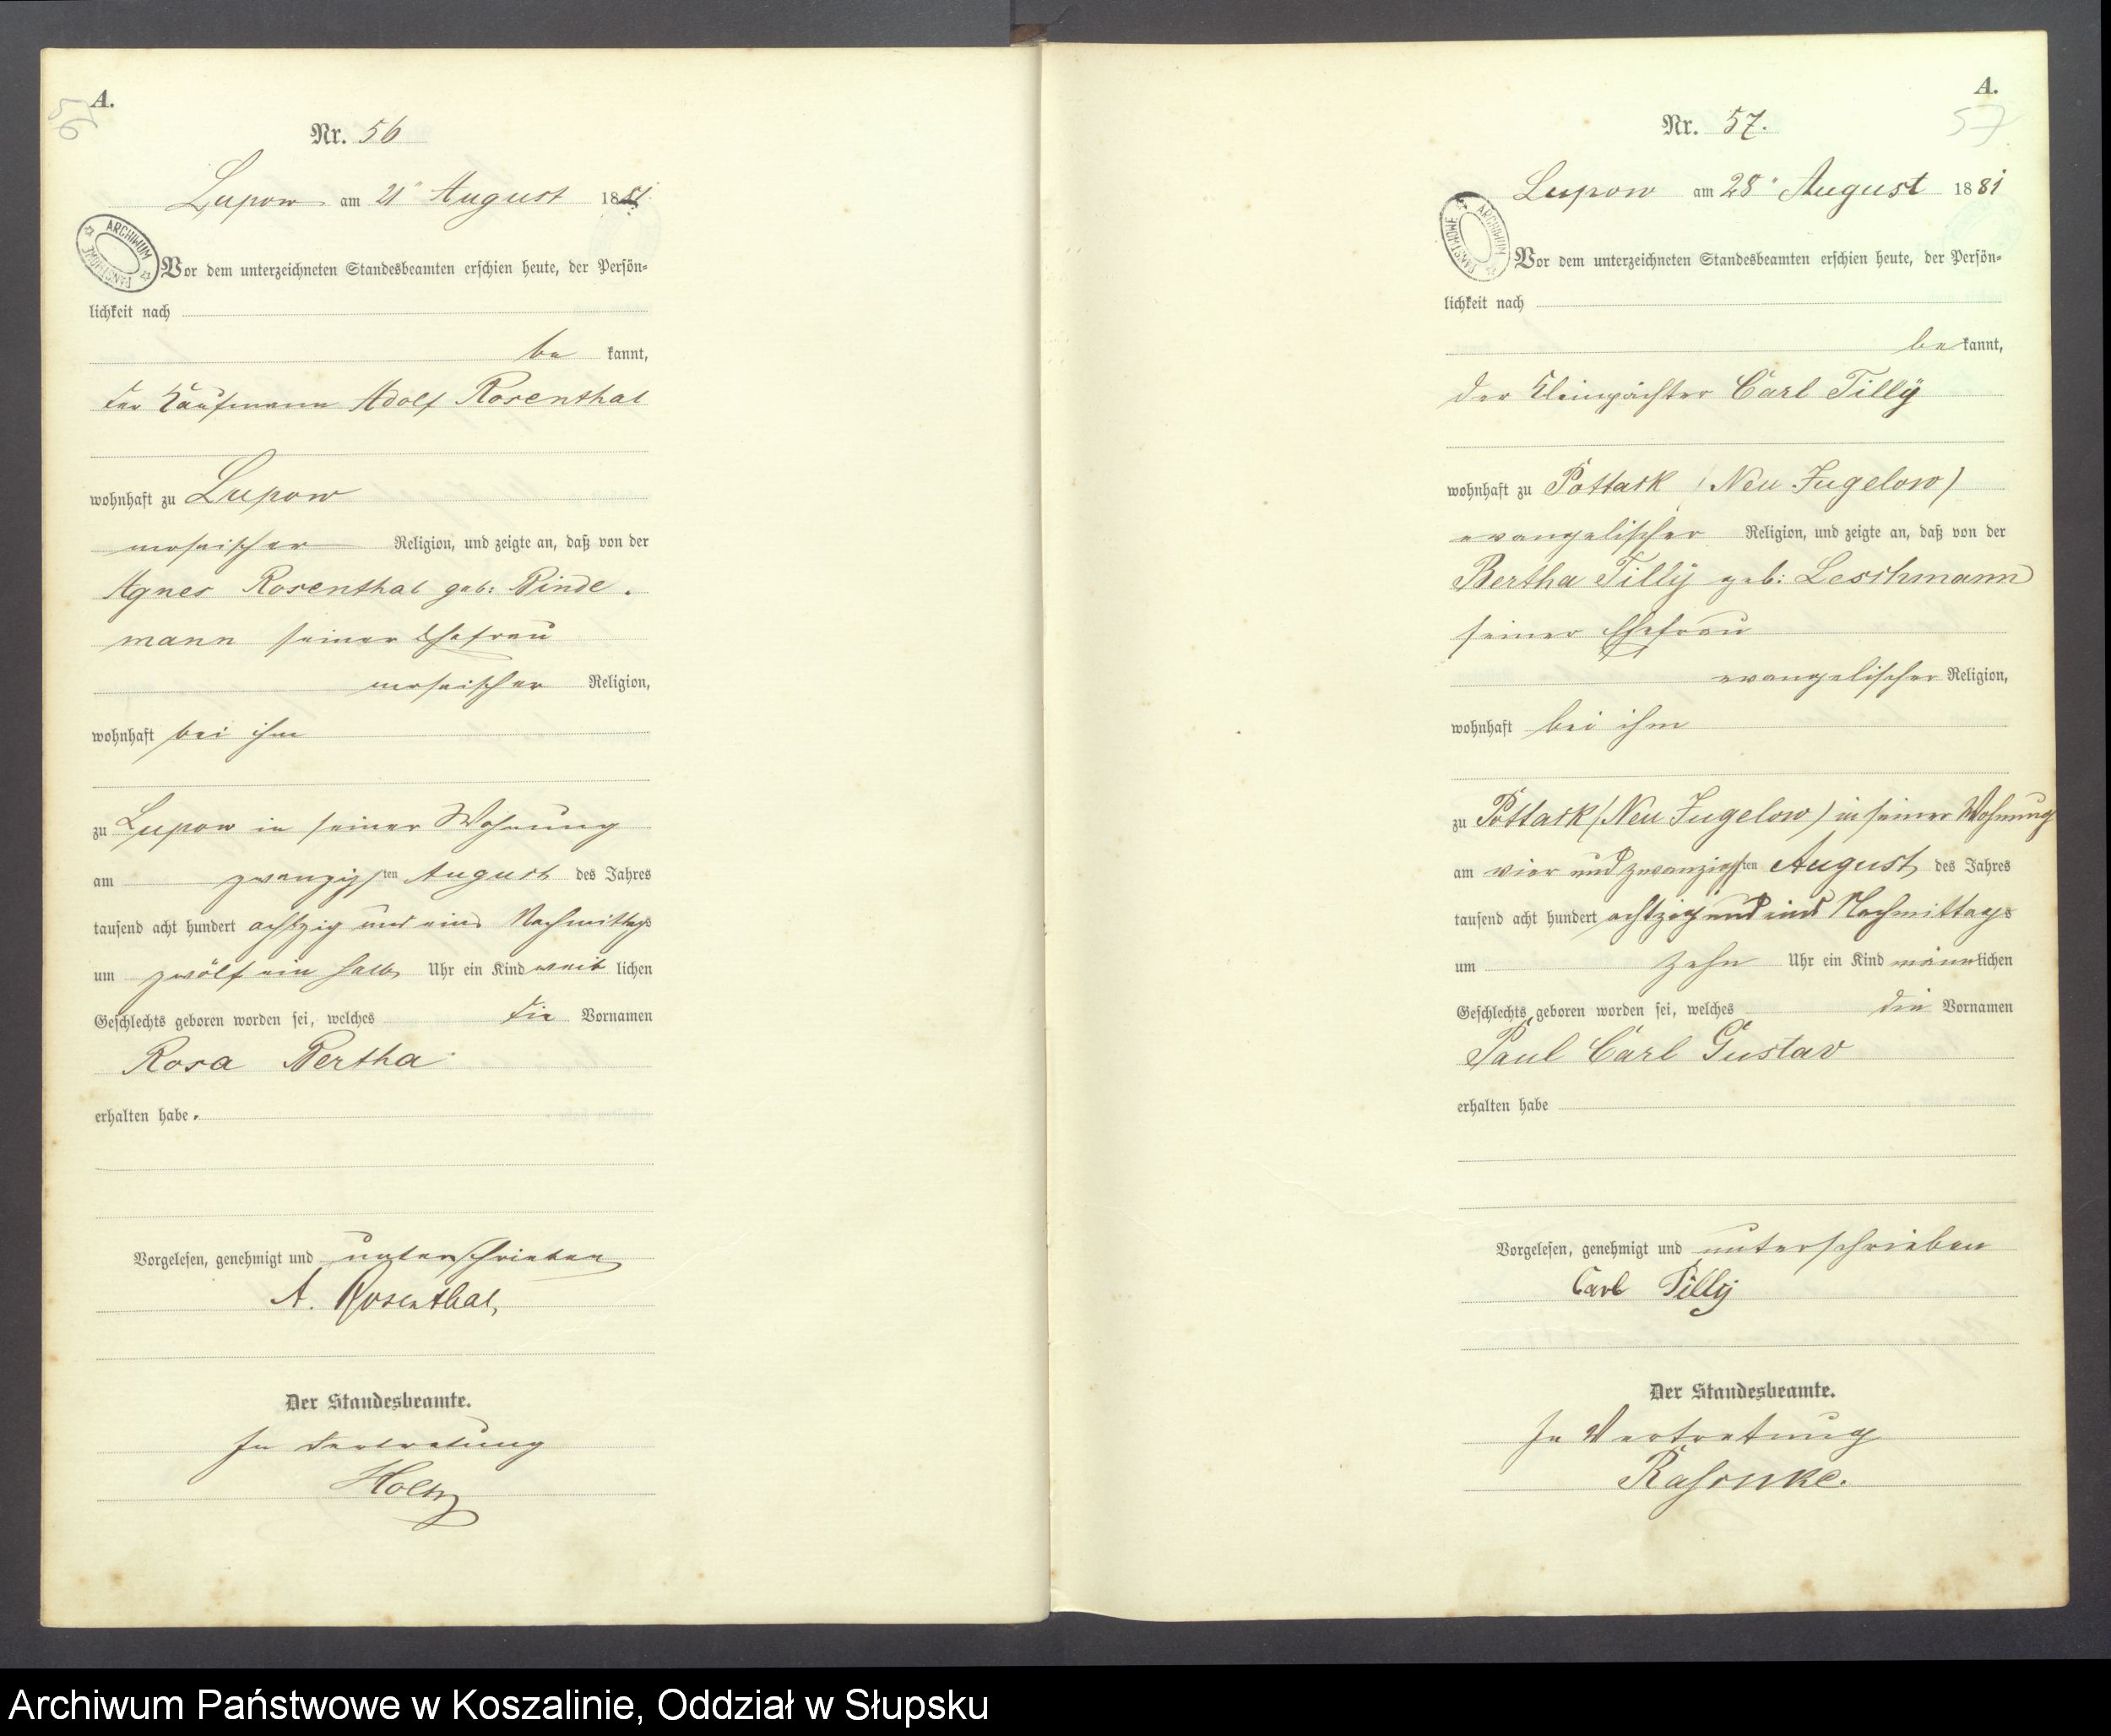 A.
56
Nr. 56
Lupow am 21ten August 1881.
ARCHIWUM PAŃSTWOWE
Vor dem unterzeichneten Standesbeamten erschien heute, der Persön-
lichkeit nach
be kannt,
der Kaufmann Adolf Rosenthal
wohnhaft zu Lupow
mosaischer Religion, und zeigte an, daß von der
Agnes Rosenthal geb: Binde-
mann seiner Ehefrau
mosaischer Religion,
wohnhaft bei ihm
zu Lupow in seiner Wohnung
am zwanzigsten August des Jahres
tausend acht hundert achtzig und eins Nachmittags
um zwölf ein halb Uhr ein Kind weib lichen
Geschlechts geboren worden sei, welches die Vornamen
Rosa Bertha
erhalten habe.
Vorgelesen, genehmigt und unterschrieben
A. Rosenthal,
Der Standesbeamte.
In Vertretung
Holtz
A.
57
Nr. 57.
Lupow am 28ten August 1881
ARCHIWUM PAŃSTWOWE
Vor dem unterzeichneten Standesbeamten erschien heute, der Persön-
lichkeit nach
be kannt,
der Kleinpächter Carl Tilly
wohnhaft zu Pottack (Neu Jugelow)
evangelischer Religion, und zeigte an, daß von der
Bertha Tilly geb: Leschmann
seiner Ehefrau
evangelischer Religion,
wohnhaft bei ihm
zu Pottack (Neu Jugelow) in seiner Wohnung
am vier und zwanzigsten August des Jahres
tausend acht hundert achtzig und eins Nachmittags
um zehn Uhr ein Kind männlichen
Geschlechts geboren worden sei, welches die Vornamen
Paul Carl Gustav
erhalten habe
Vorgelesen, genehmigt und unterschrieben
Carl Tilly
Der Standesbeamte.
In Vertretung
Archiwum Państwowe w Koszalinie, Oddział w Słupsku